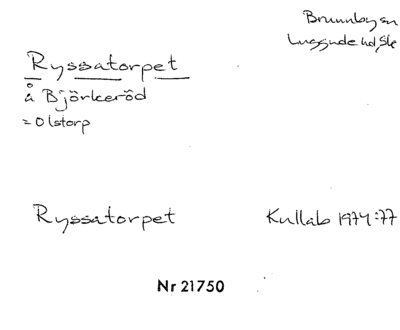 Brunnby sn
Luggude hd, Sk
Ryssatorpet
å Björkeröd
= Olstorp
Ryssatorpet Kullab 1974:77
Nr 21750